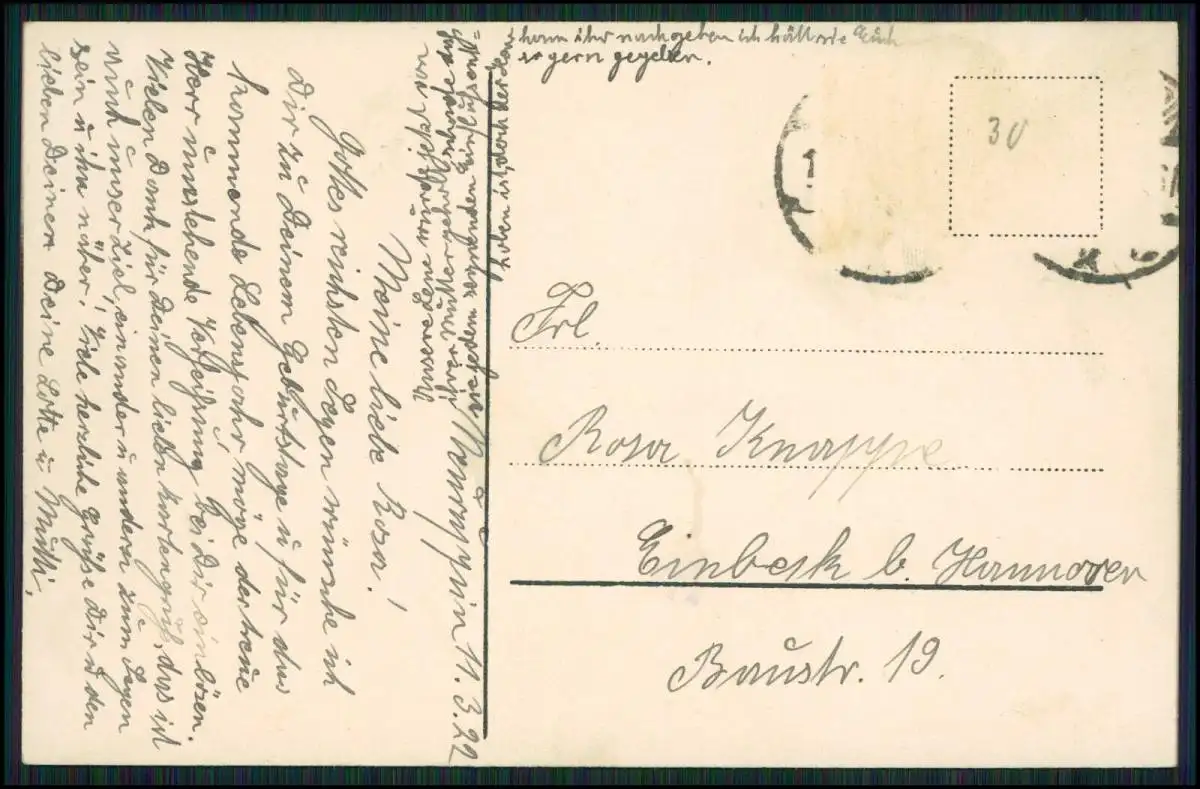 Neuruppin 11.3.22
Meine liebe Rosa!
Gottes reichsten Segen wünsche ich
Dir zu Deinem Geburtstage u. für das
kommende Lebensjahr, möge der treue
Herr ausstehende Verheißung bei Dir einlösen.
Vielen Dank für Deinen lieben Kartengruß, das ist
auch unser Ziel, einander u. andern zum Segen
sein u. ihm näher! Viele herzliche Grüße Dir u. den
lieben Deinen Deine Lotte u. Mutti.
kann ihr nachgeben ich hätt sie Euch
so gern gegeben.
30
1
Frl.
Rosa Knappe
Einbeck b. Hannover
Baustr. 19.